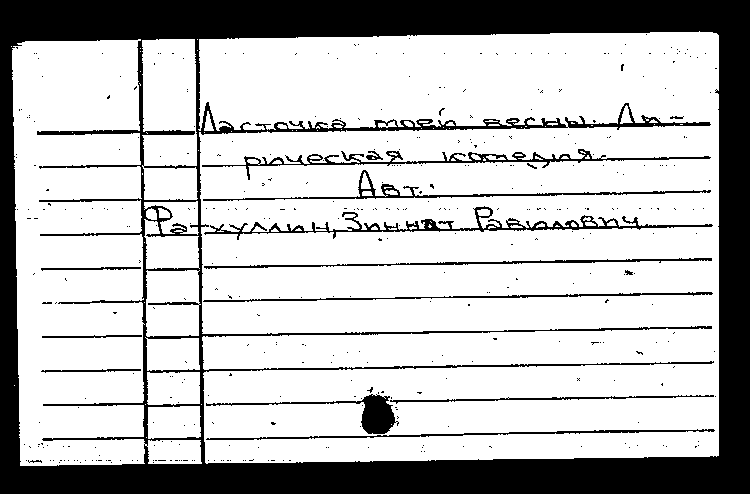 Ласточка моей весны. Ли-
рическая комедия.
Авт.:
Фатхуллин, Зиннат Равилович